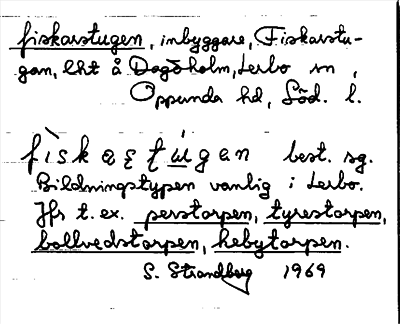 fiskarstugen, inbyggare, Fiskarstu-
gan, lht å Dagsholm, Lerbo sn,
Oppunda hd, Söd. l.
fìskaʂtúgan best. sg.
Bildningstypen vanlig i Lerbo.
Jfr t. ex. perstorpen, tyrestorpen,
bollvedstorpen, hebytorpen.
S. Strandberg 1969